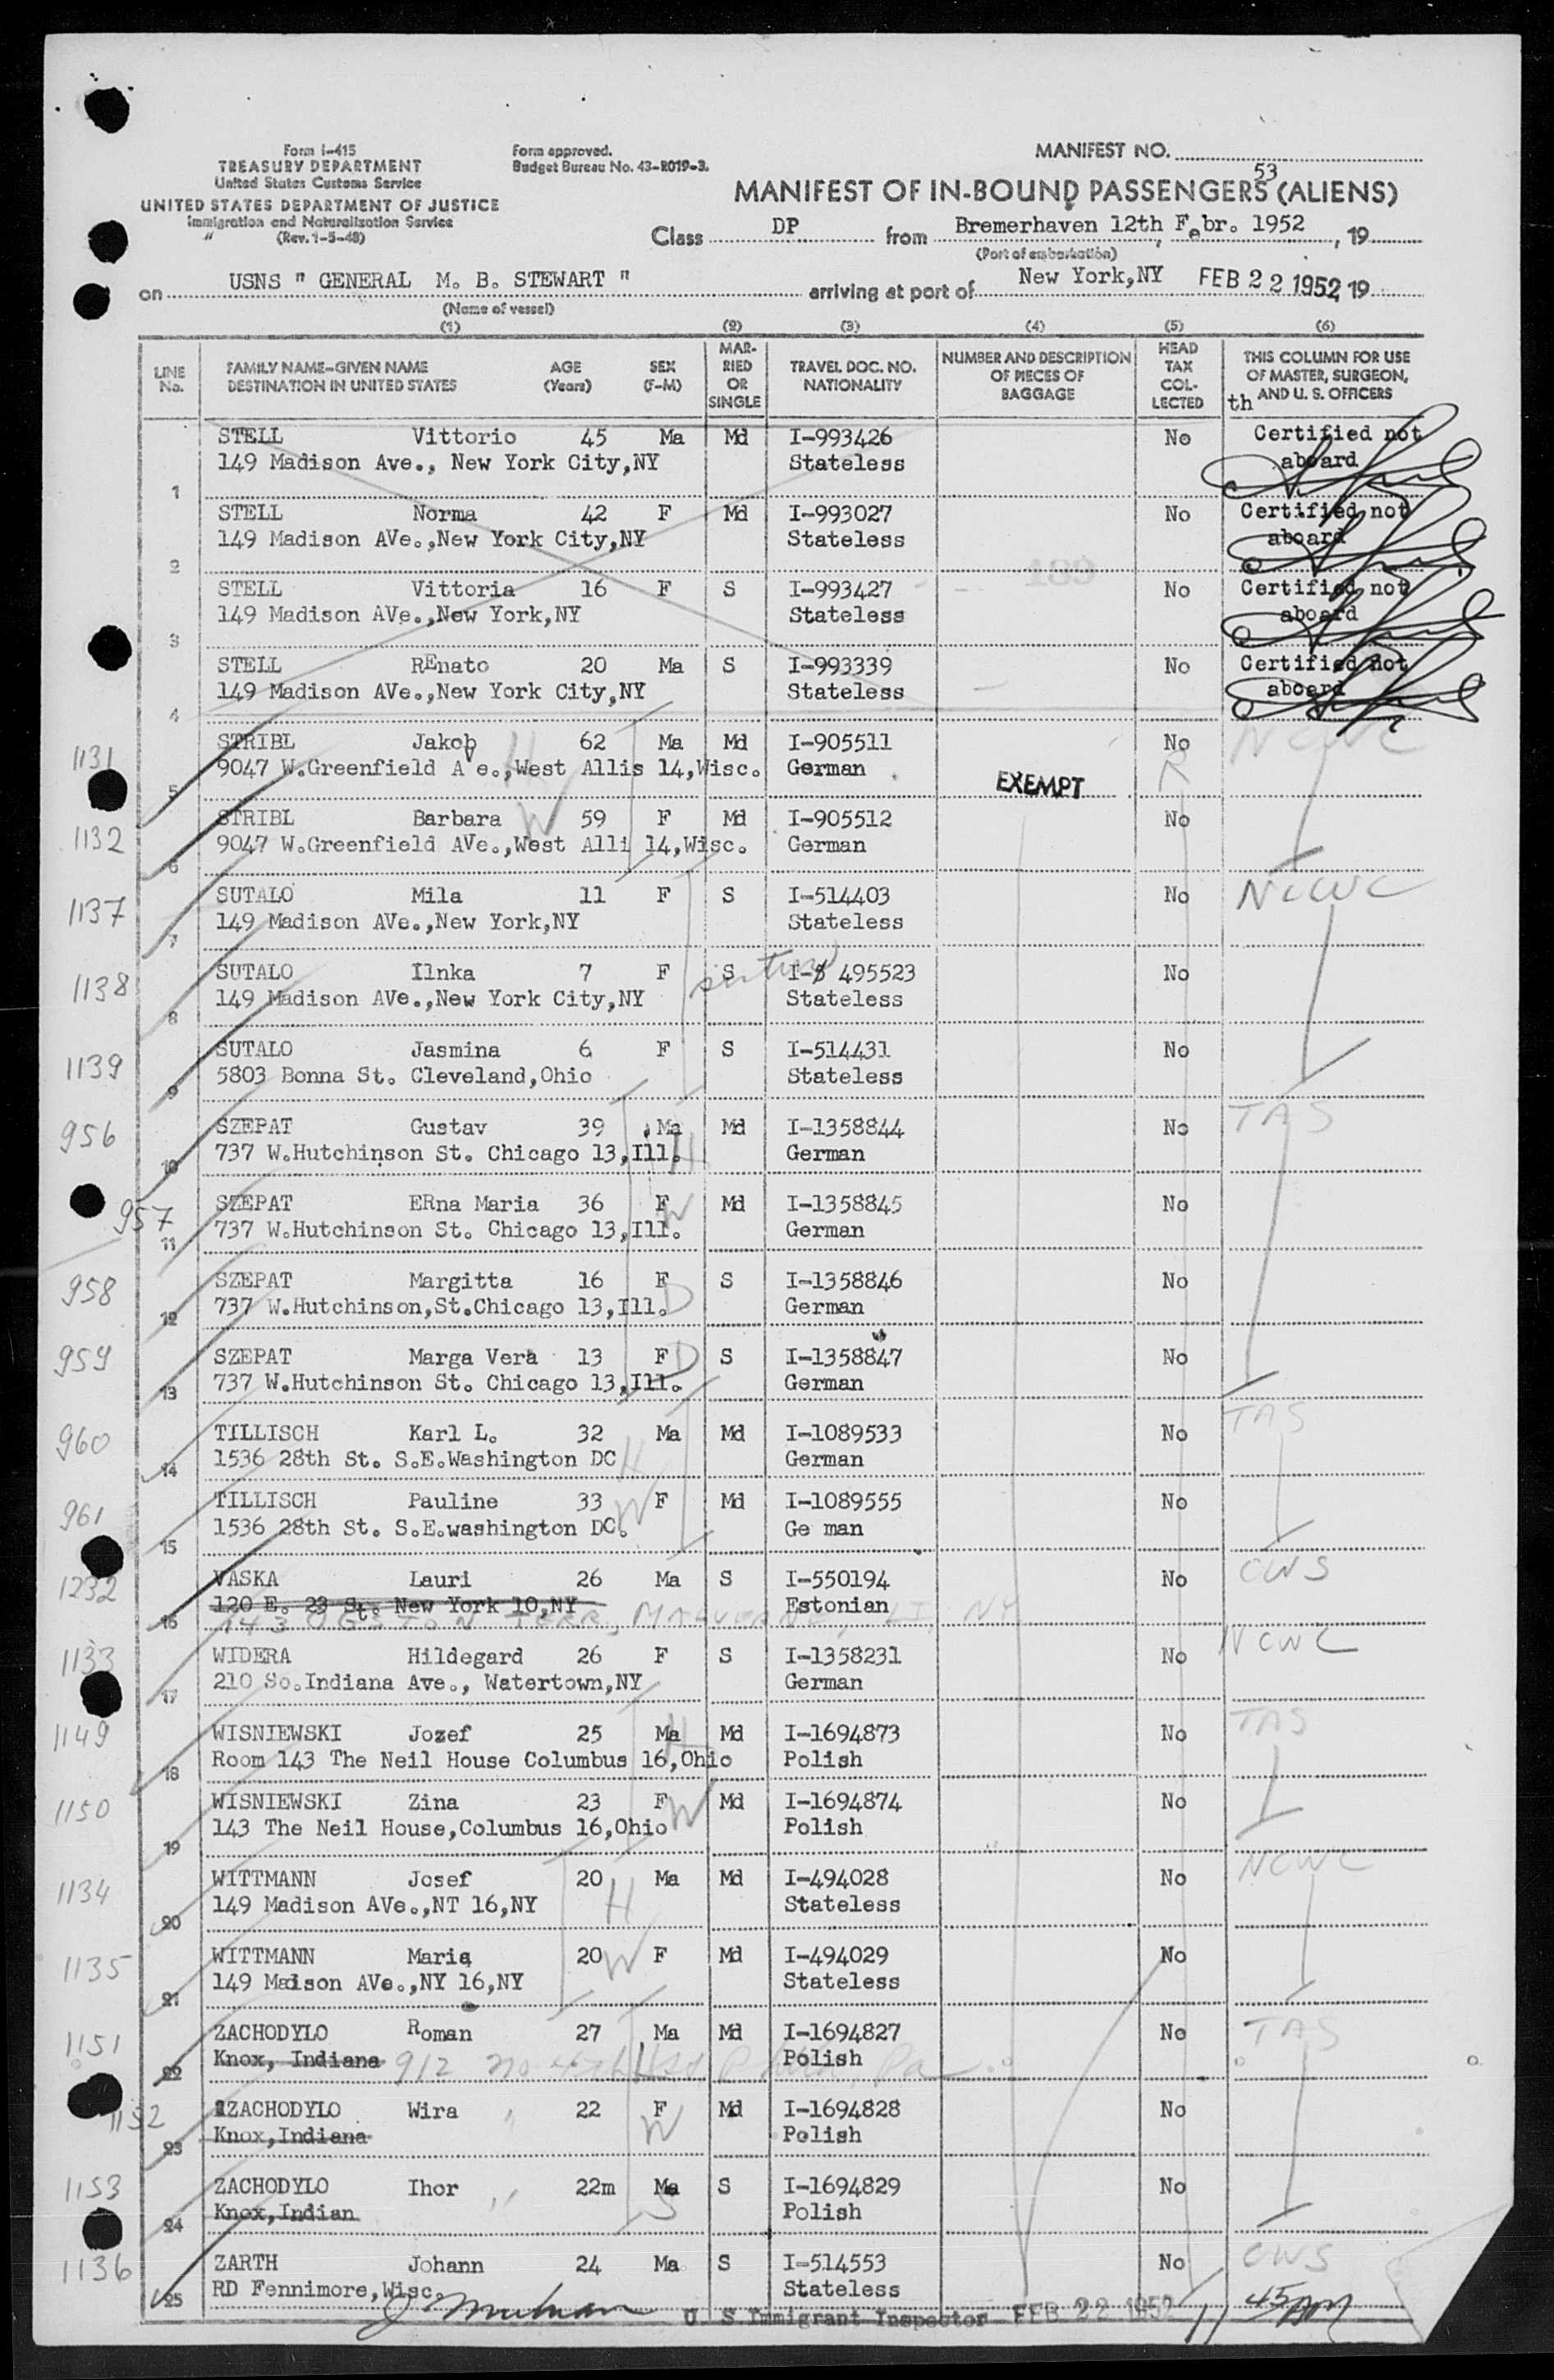 Form I-415
TREASURY DEPARTMENT
United States Customs Service
UNITED STATES DEPARTMENT OF JUSTICE
Immigration and Naturalization Service
(Rev. 1-5-48)
Form approved.
Budget Bureau No. 43-R019-3.
MANIFEST NO.
53
MANIFEST OF IN-BOUND PASSENGERS (ALIENS)
Class DP from Bremerhaven 12th Febr. 1952, 19
(Port of embarkation)
on USNS " GENERAL M. B. STEWART " arriving at port of New York,NY FEB 22 1952, 19
(Name of vessel)
(1) (2) (3) (4) (5) (6)
LINE No. FAMILY NAME-GIVEN NAME DESTINATION IN UNITED STATES AGE (Years) SEX (F-M) MARRIED OR SINGLE TRAVEL DOC. NO. NATIONALITY NUMBER AND DESCRIPTION OF PIECES OF BAGGAGE HEAD TAX COLLECTED THIS COLUMN FOR USE OF MASTER, SURGEON, AND U. S. OFFICERS
th
STELL Vittorio 45 Ma Md I-993426 No Certified not
149 Madison Ave., New York City,NY Stateless aboard
1
STELL Norma 42 F Md I-993027 No Certified not
149 Madison AVe.,New York City,NY Stateless aboard
2
189
STELL Vittoria 16 F S I-993427 No Certified not
149 Madison AVe.,New York,NY Stateless aboard
3
STELL REnato 20 Ma S I-993339 No Certified not
149 Madison AVe.,New York City,NY Stateless aboard
4
1131 STRIBL Jakob 62 Ma Md I-905511 No NCWC
9047 W.Greenfield AVe.,West Allis 14,Wisc. German H R
5 EXEMPT
1132 STRIBL Barbara 59 F Md I-905512 No
9047 W.Greenfield AVe.,West Alli 14,Wisc. German W
6
1137 SUTALO Mila 11 F S I-514403 No NCWC
149 Madison AVe.,New York,NY Stateless
7
1138 SUTALO Ilnka 7 F S I-$ 495523 No
149 Madison AVe.,New York City,NY Stateless
8
1139 SUTALO Jasmina 6 F S I-514431 No
5803 Bonna St. Cleveland,Ohio Stateless
9
956 SZEPAT Gustav 39 Ma Md I-1358844 No TAS
737 W.Hutchinson St. Chicago 13,Ill. H German
10
957 SZEPAT ERna Maria 36 F W Md I-1358845 No
737 W.Hutchinson St. Chicago 13,Ill. German
11
958 SZEPAT Margitta 16 F D S I-1358846 No
737 W.Hutchinson,St.Chicago 13,Ill. German
12
959 SZEPAT Marga Vera 13 F D S I-1358847 No
737 W.Hutchinson St. Chicago 13,Ill. German
13
960 TILLISCH Karl L. 32 Ma Md I-1089533 No TAS
1536 28th St. S.E.Washington DC H German
14
961 TILLISCH Pauline 33 W F Md I-1089555 No
1536 28th St. S.E.washington DC. Ge man
15
1232 VASKA Lauri 26 Ma S I-550194 No CWS
120 E. 23 St. New York 10,NY Estonian
16 TERR., MALVERNE, LI, NY
1133 WIDERA Hildegard 26 F S I-1358231 No NCWC
210 So.Indiana Ave., Watertown,NY German
17
1149 WISNIEWSKI Jozef 25 Ma H Md I-1694873 No TAS
Room 143 The Neil House Columbus 16,Ohio Polish
18
1150 WISNIEWSKI Zina 23 F W Md I-1694874 No
143 The Neil House,Columbus 16,Ohio Polish
19
1134 WITTMANN Josef 20 Ma Md I-494028 No NCWC
149 Madison AVe.,NT 16,NY H Stateless
20
1135 WITTMANN Maria 20 W F Md I-494029 No
149 Maison AVe.,NY 16,NY Stateless
21
1151 ZACHODYLO Roman 27 Ma Md I-1694827 No TAS
Knox, Indiana 912 No Phila, Pa. Polish
22
1152 ZACHODYLO Wira " 22 F W Md I-1694828 No
Knox,Indiana Polish
23
1153 ZACHODYLO Ihor " 22m Ma S S I-1694829 No
Knox,Indian Polish
24
1136 ZARTH Johann 24 Ma S I-514553 No CWS
RD Fennimore,Wisc. Stateless
25
U. S. Immigrant Inspector FEB 22 1952 11 45 AM